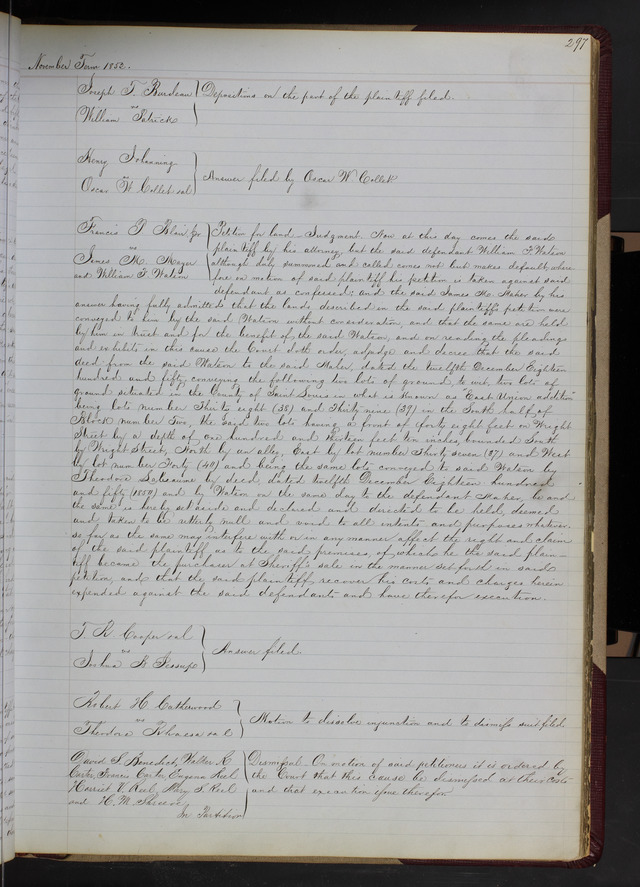 297
November Term 1852.
Joseph T. Burdeau
vs
William Patrick
Depositions on the part of the plaintiff filed.
Henry
Oscar W. Collet et al
Answer filed by Oscar W. Collet
Francis P. Blair Jr
vs
James M. Mager
and William F. Watson
Petition for land - Judgment. Now at this day comes the said
plaintiff by his attorney, but the said defendant William F. Watson
although duly summoned and called comes not but makes default, where
fore on motion of said plaintiff his petition is taken against said
defendant as confessed and the said James M. Maher by his
answer having fully admitted that the lands described in the said plaintiffs petition were
conveyed to him by the said Watson without consideration, and that the same are held
by him in trust and for the benefit of the said Watson, and on reading the pleadings
and exhibits in this cause the Court doth order, adjudge and decree that the said
deed from the said Watson to the said Maher, dated the twelfth December Eighteen
hundred and fifty conveying the following two lots of ground to wit, two lots of
ground situated in the County of Saint Louis in what is known as "East Union addition"
being lots number Thirty eight (38) and Thirty nine (39) in the South half of
Block number Two, the said two lots having a front of forty eight feet on Wright
Street by a depth of one hundred and thirteen feet ten inches, bounded South
by Wright Street, North by an alley, East by lot number Thirty seven (37) and West
by lot number Forty (40) and being the same lots conveyed to said Watson by
Theodore by deed, dated twelfth December Eighteen hundred
and fifty (1850) and by Watson on the same day to the defendant Maher, be and
the same is hereby set aside and declared and directed to be held, deemed
and taken to be utterly null and void to all intents and purposes whatever
so far as the same may interfere with or in any manner affect the right and claim
of the said plaintiff as to the said premises, of which he the said plain-
tiff became the purchaser at Sheriff's sale in the manner set forth in said
petition, and that the said plaintiff recover his costs and charges herein
expended against the said defendants and have therefor execution.
T. R. Cooper et al
vs
Joshua B. Jessup
Answer filed
Robert H. Catherwood
vs
Theodore et al
Motion to dissolve injunction and to dismiss suit filed
David S. Benedict, Walter R.
Carter, Francis Carter, Eugene Keel
Harriet V. Keel, Mary S. Keel
and H. M.
In Partition
Dismissal. On motion of said petitioners it is ordered by
the Court that this cause be dismissed at their costs
and that execution issue therefor.